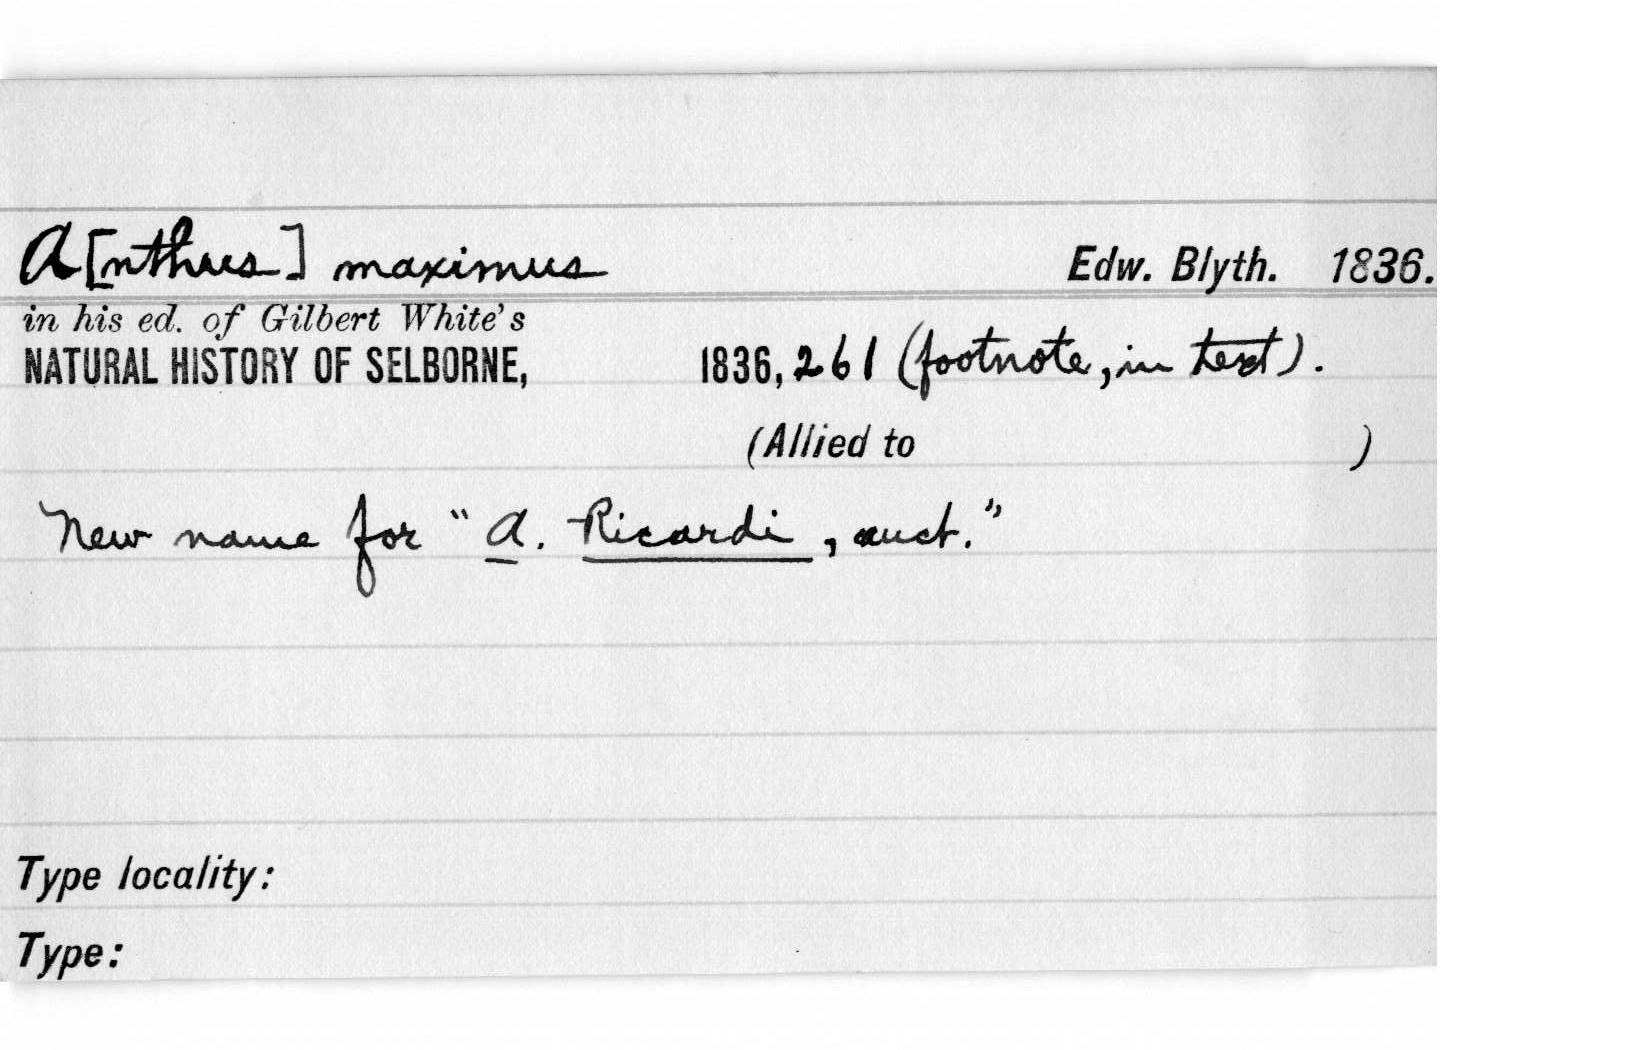 A[nthus] maximus Edw. Blyth. 1836.
in his ed. of Gilbert White's
NATURAL HISTORY OF SELBORNE, 1836, 261 (footnote, in text).
(Allied to )
New name for "A. Ricardi, auct."
Type locality:
Type: